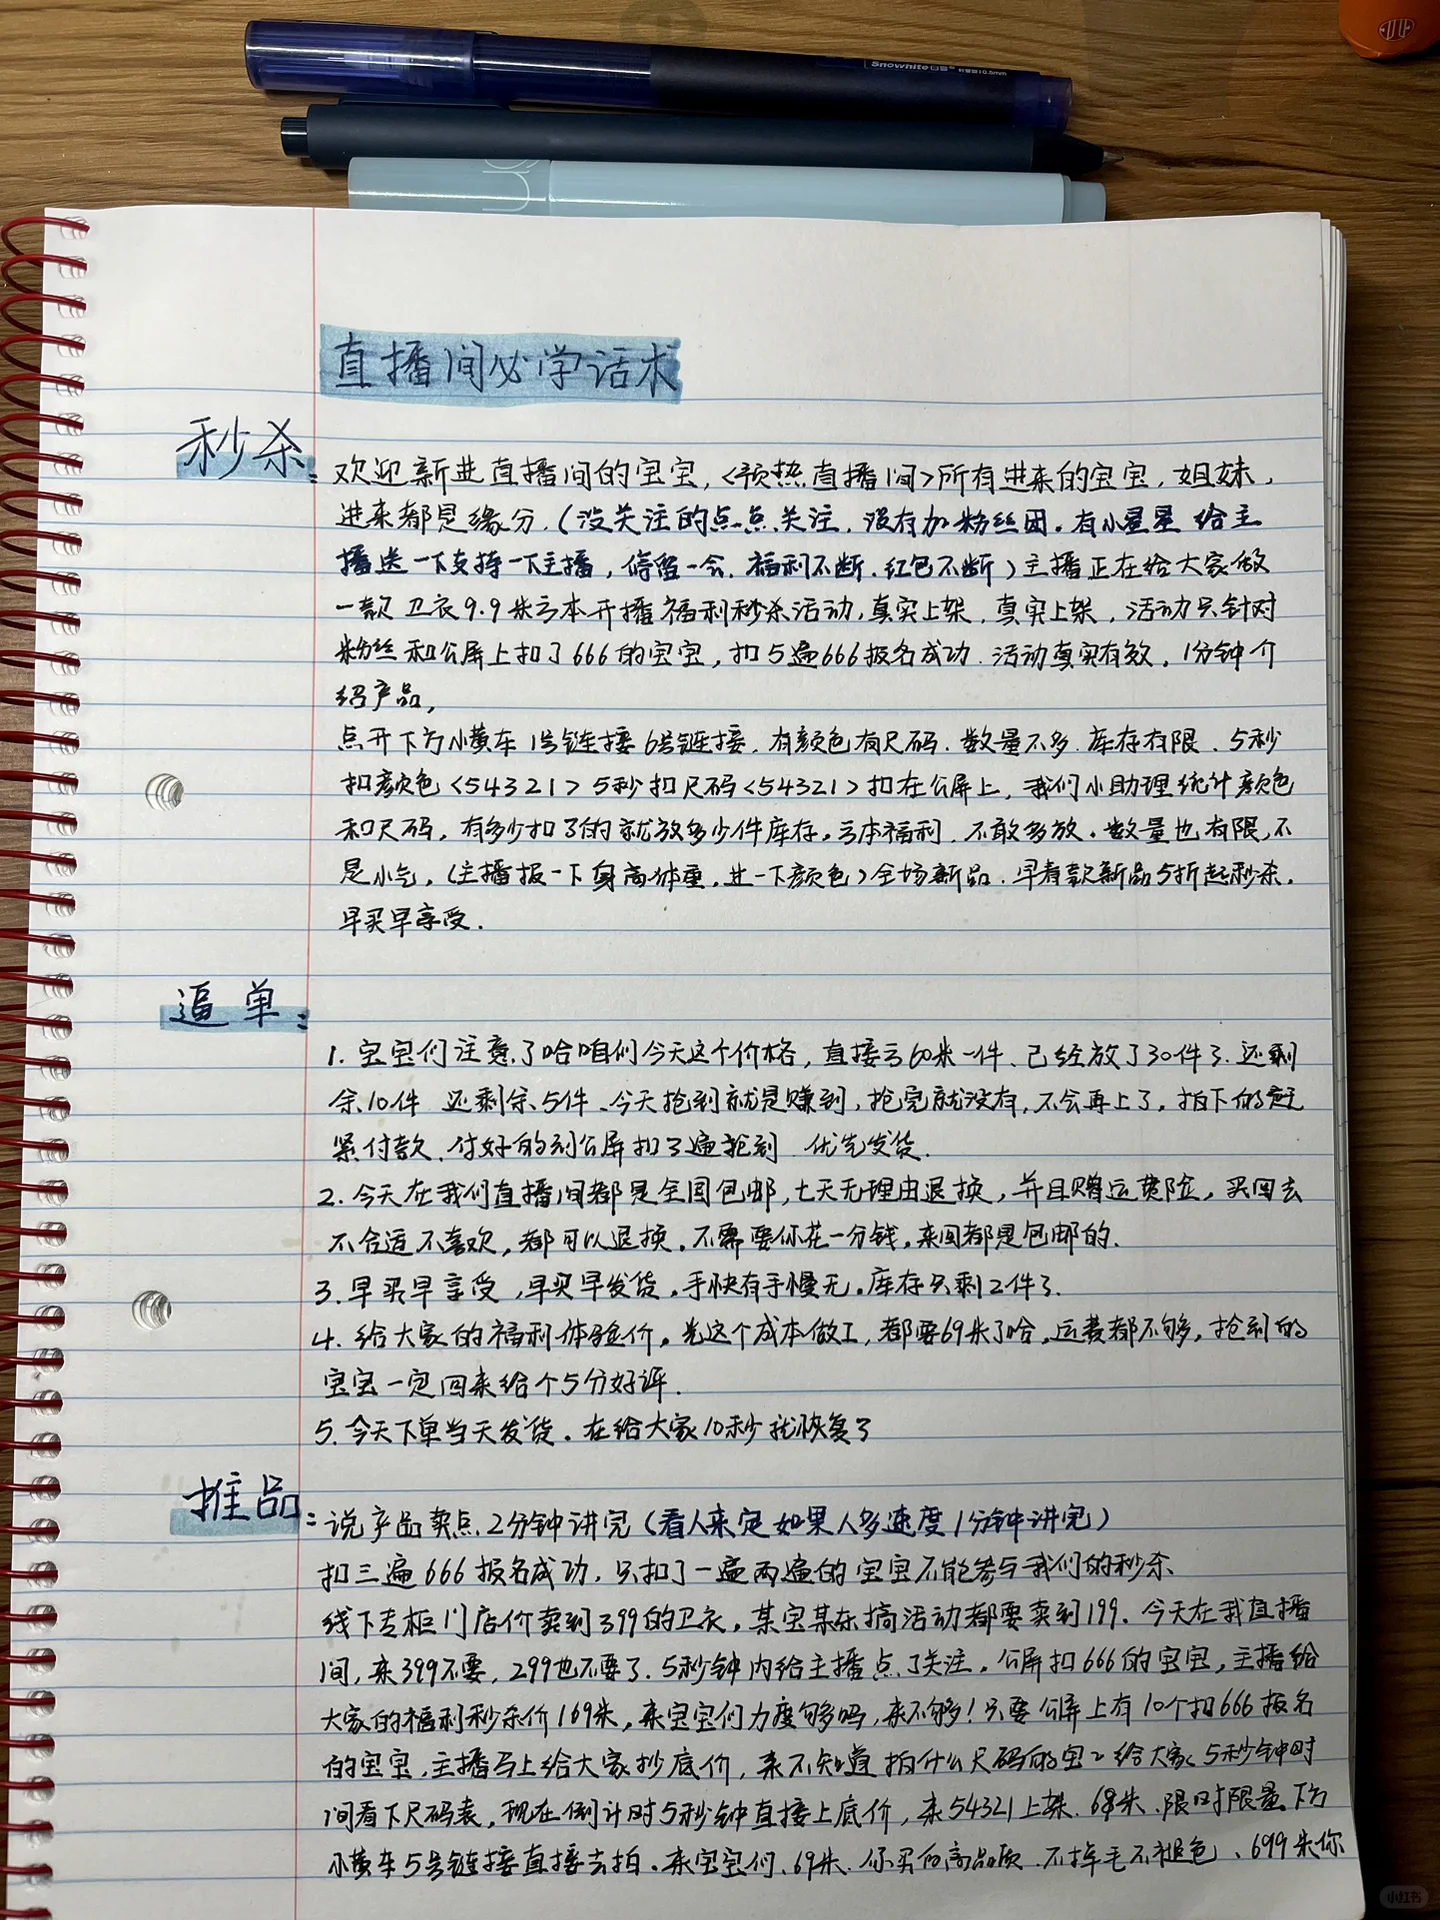 Snowhite 0.5mm
直播间必学话术
秒杀:
欢迎新进直播间的宝宝,<预热直播间>所有进来的宝宝,姐妹,
进来都是缘分.(没关注的点点关注.没有加粉丝团.有小星星给主
播送一下支持一下主播,停留一会.福利不断.红包不断)主播正在给大家做
一款卫衣9.9米亏本开播福利秒杀活动,真实上架,真实上架,活动只针对
粉丝和公屏上扣了666的宝宝,扣5遍666报名成功.活动真实有效.1分钟介
绍产品,
点开下方小黄车1号链接6号链接.有颜色有尺码.数量不多.库存有限.5秒
扣颜色<54321>5秒扣尺码<54321>扣在公屏上,我们小助理统计颜色
和尺码,有多少扣了的就放多少件库存。亏本福利.不敢多放.数量也有限,不
是小气.(主播报一下身高体重.进一下颜色)全场新品.早春款新品5折起秒杀.
早买早享受.
逼单:
1.宝宝们注意了哈咱们今天这个价格,直接亏60米一件、已经放了30件了.还剩
余10件 还剩余5件、今天抢到就是赚到,抢完就没有,不会再上了,拍下的赶
紧付款、付好的到公屏扣3遍抢到 优先发货.
2.今天在我们直播间都是全国包邮,七天无理由退换,并且赠运费险,买回去
不合适不喜欢,都可以退换.不需要你花一分钱,来回都是包邮的.
3.早买早享受,早买早发货.手快有手慢无.库存只剩2件了.
4.给大家的福利体验价。光这个成本做工,都要69米了哈.运费都不够,抢到的
宝宝一定回来给个5分好评.
5.今天下单当天发货.在给大家10秒就恢复了
推品:
说产品卖点.2分钟讲完(看人来定如果人多速度1分钟讲完)
扣三遍666报名成功.只扣了一遍两遍的宝宝不能参与我们的秒杀
线下专柜门店价卖到399的卫衣,某宝某东搞活动都要卖到199.今天在我直播
间,来399不要,299也不要了.5秒钟内给主播点了关注.公屏扣666的宝宝,主播给
大家的福利秒杀价169米,来宝宝们力度够吗,来不够!只要公屏上有10个扣666报名
的宝宝,主播马上给大家抄底价,来不知道拍什么尺码的宝2给大家5秒钟时
间看下尺码表,现在倒计时5秒钟直接上底价,来54321上架.68米.限时限量下方
小黄车5号链接直接去拍.来宝宝们、69米.你买的高品质.不掉毛不褪色、699米你
小红书